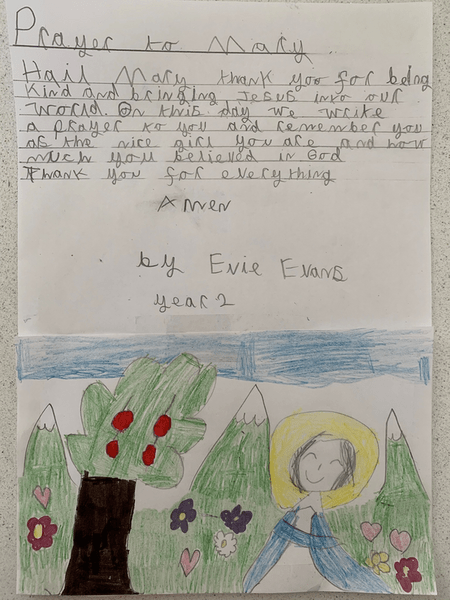 Prayer to Mary
Hail Mary thank you for being
kind and bringing Jesus into our
world. On this day we write
a prayer to you and remember you
as the nice girl you are and how
much you believed in God
Thank you for everything
Amen
by Evie Evans
year 2